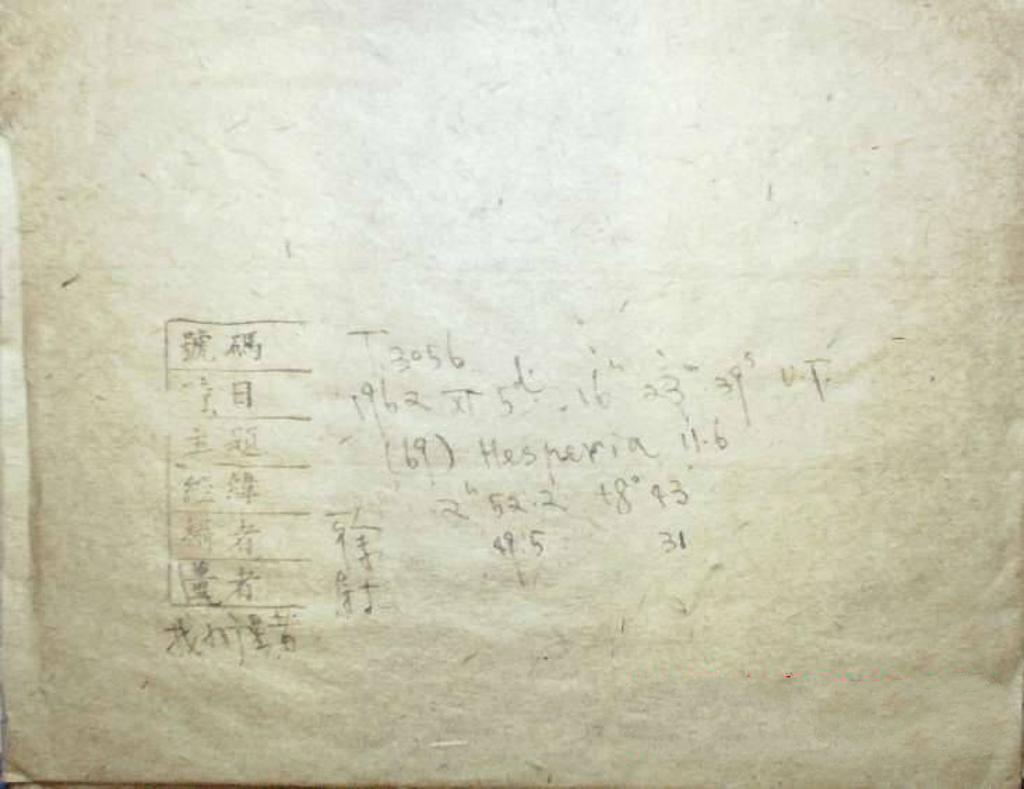 號碼 T 3056
日 1962 XI 5d. 16h 23m 39s U.T.
主題 (69) Hesperia 11.6
經緯 2h 52.2 +8° 43'
者 徐 49.5 31
量者